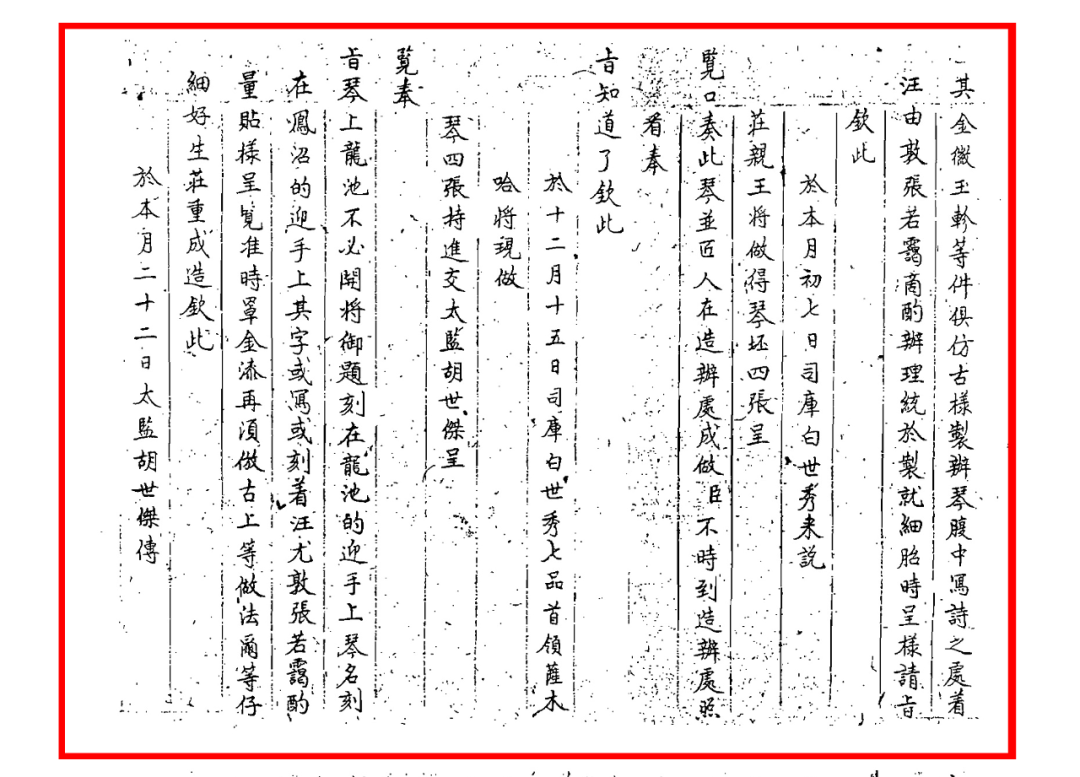 其金徽玉軫等件俱仿古樣製辦琴腹中寫詩之處着
汪由敦張若靄商酌辦理統於製就細胎時呈樣請旨
欽此
於本月初七日司庫白世秀来說
莊親王将做得琴坯四張呈
覽口奏此琴並匠人在造辦處成做臣不時到造辦處照
看奉
旨知道了欽此
於十二月十五日司庫白世秀七品首領薩木
哈将現做
琴四張持進交太監胡世傑呈
覽奉
旨琴上龍池不必開将御題刻在龍池的迎手上琴名刻
在鳳沼的迎手上其字或寫或刻着汪尤敦張若靄酌
量貼樣呈覽准時罩金漆再湏倣古上等做法爾等仔
細好生莊重成造欽此
於本月二十二日太監胡世傑傳